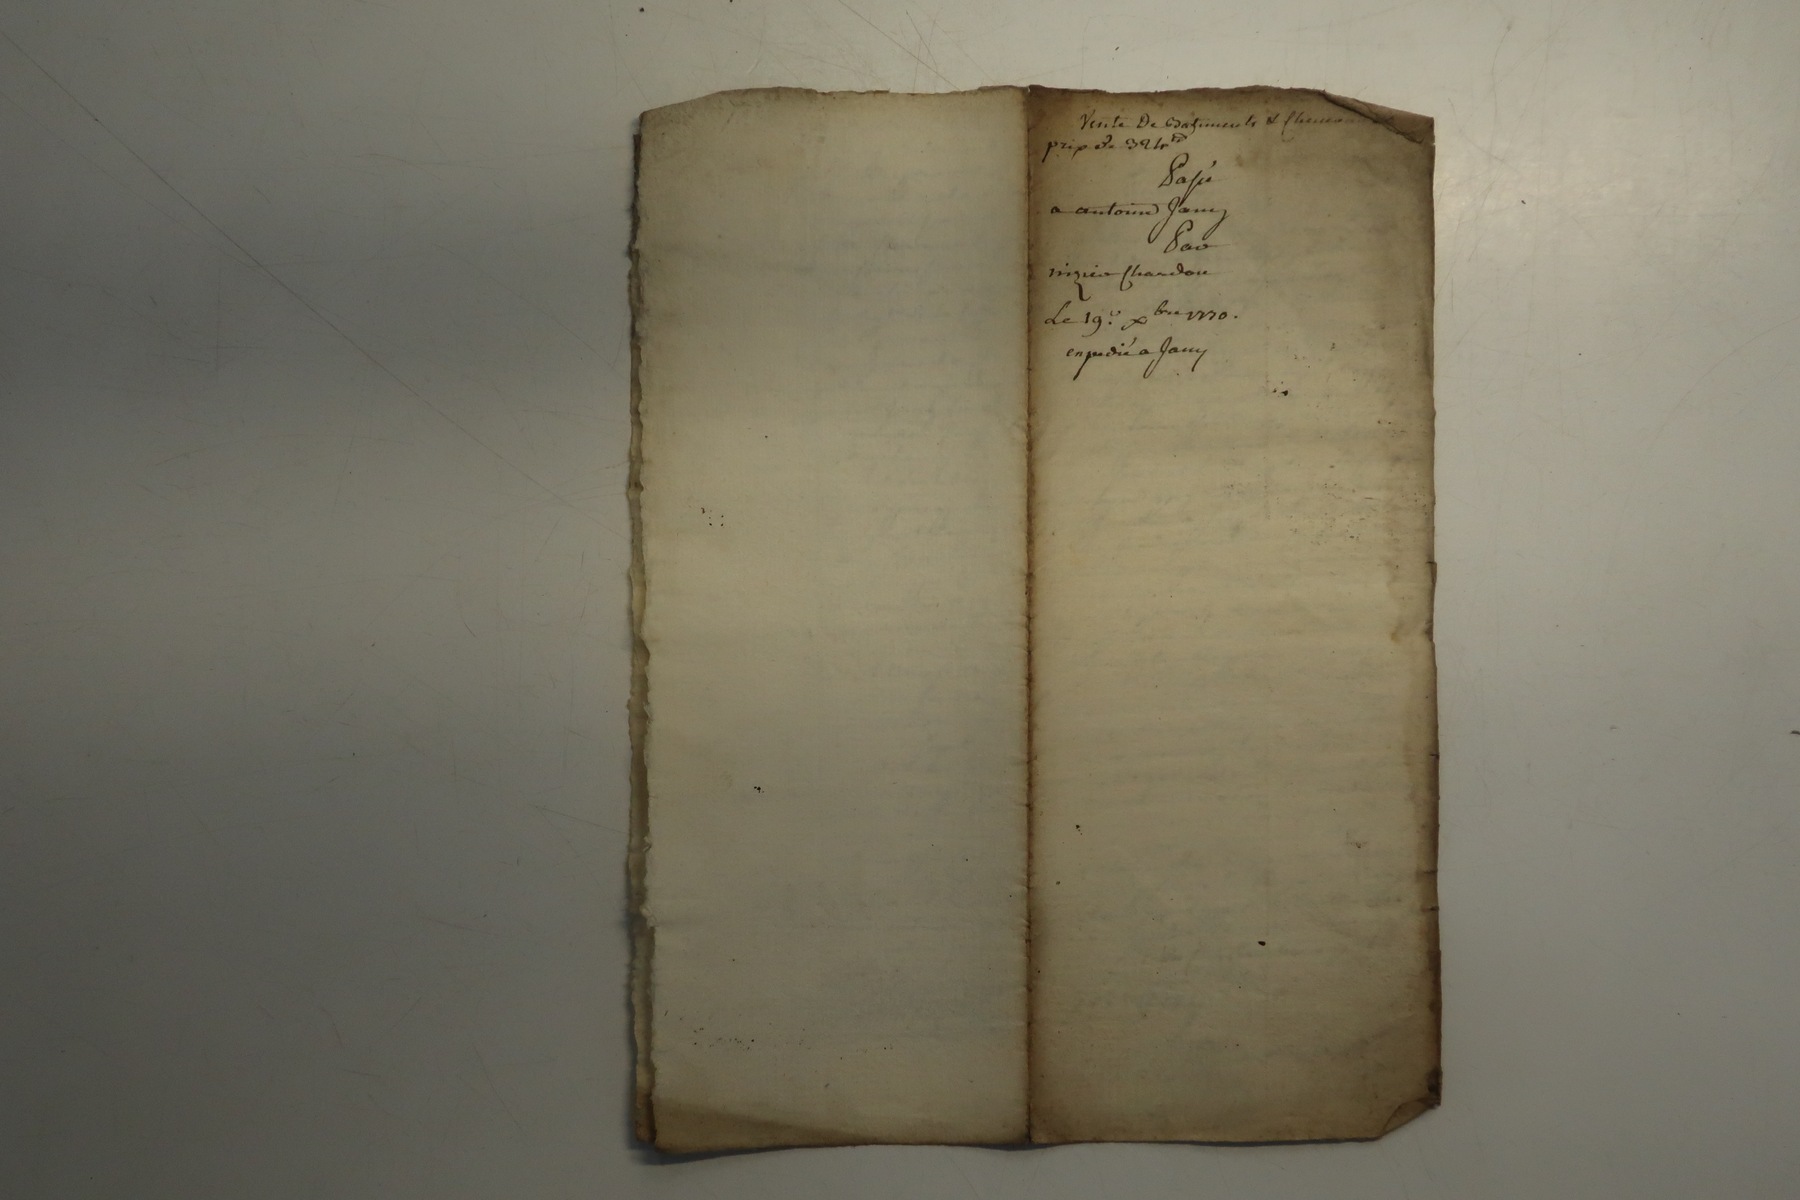 Vente De Batiments &
prix de 324#
Passé
a antoine Jamy
Par
nizier Chardon
Le 19.e xbre 1770.
expedié a Jamy